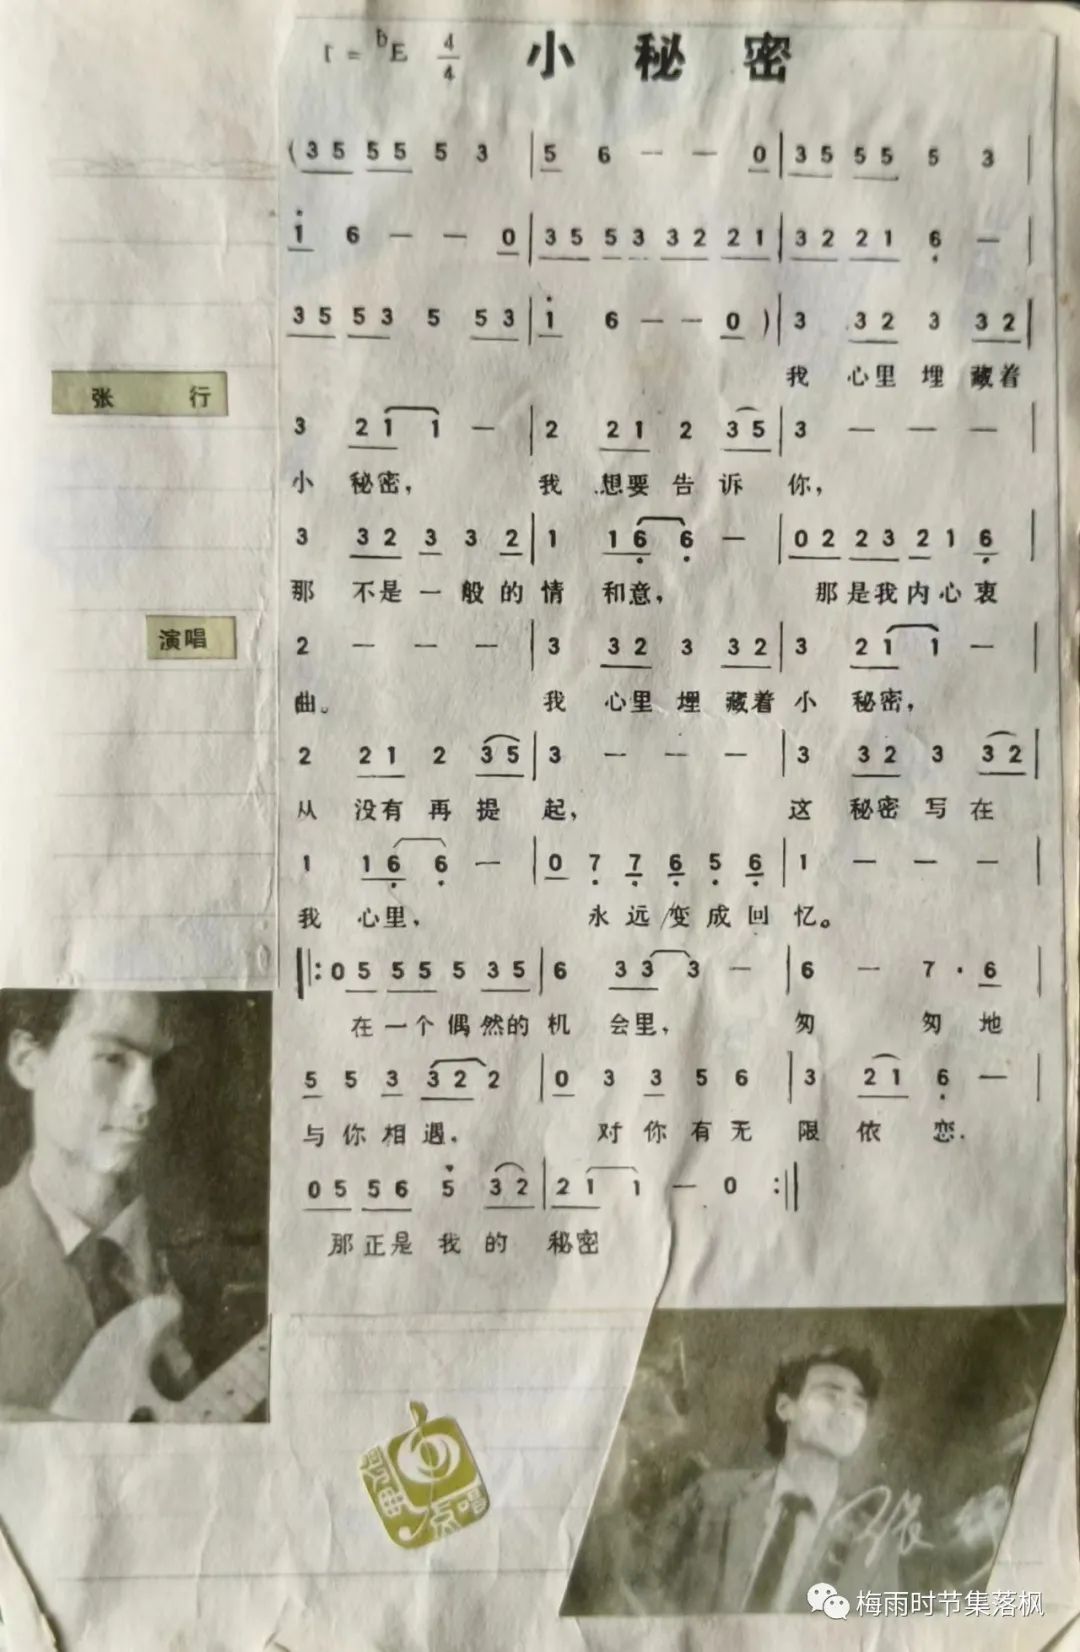 1 = ♭E 4/4 小秘密
(3 5 5 5 5 3 | 5 6 — — 0 | 3 5 5 5 5 3 |
1 6 — — 0 | 3 5 5 3 3 2 2 1 | 3 2 2 1 6 — |
3 5 5 3 5 5 3 | 1 6 — — 0 ) | 3 3 2 3 3 2 |
我 心里 埋 藏着
张 行
3 2 1 1 — | 2 2 1 2 3 5 | 3 — — — |
小 秘密， 我 想要 告 诉 你，
3 3 2 3 3 2 | 1 1 6 6 — | 0 2 2 3 2 1 6 |
那 不是 一 般 的 情 和意， 那 是我 内 心 衷
演唱
2 — — — | 3 3 2 3 3 2 | 3 2 1 1 — |
曲。 我 心里 埋 藏着 小 秘密，
2 2 1 2 3 5 | 3 — — — | 3 3 2 3 3 2 |
从 没有 再 提 起， 这 秘密 写 在
1 1 6 6 — | 0 7 7 6 5 6 | 1 — — — |
我 心里， 永 远 变 成 回 忆。
‖: 0 5 5 5 5 3 5 | 6 3 3 3 — | 6 — 7 · 6 |
在 一个 偶 然的 机 会里， 匆 匆 地
5 5 3 3 2 2 | 0 3 3 5 6 | 3 2 1 6 — |
与 你 相 遇， 对 你 有 无 限 依 恋，
0 5 5 6 5 3 2 | 2 1 1 — 0 :‖
那 正是 我 的 秘密
歌曲
点唱
张
梅雨时节集落枫